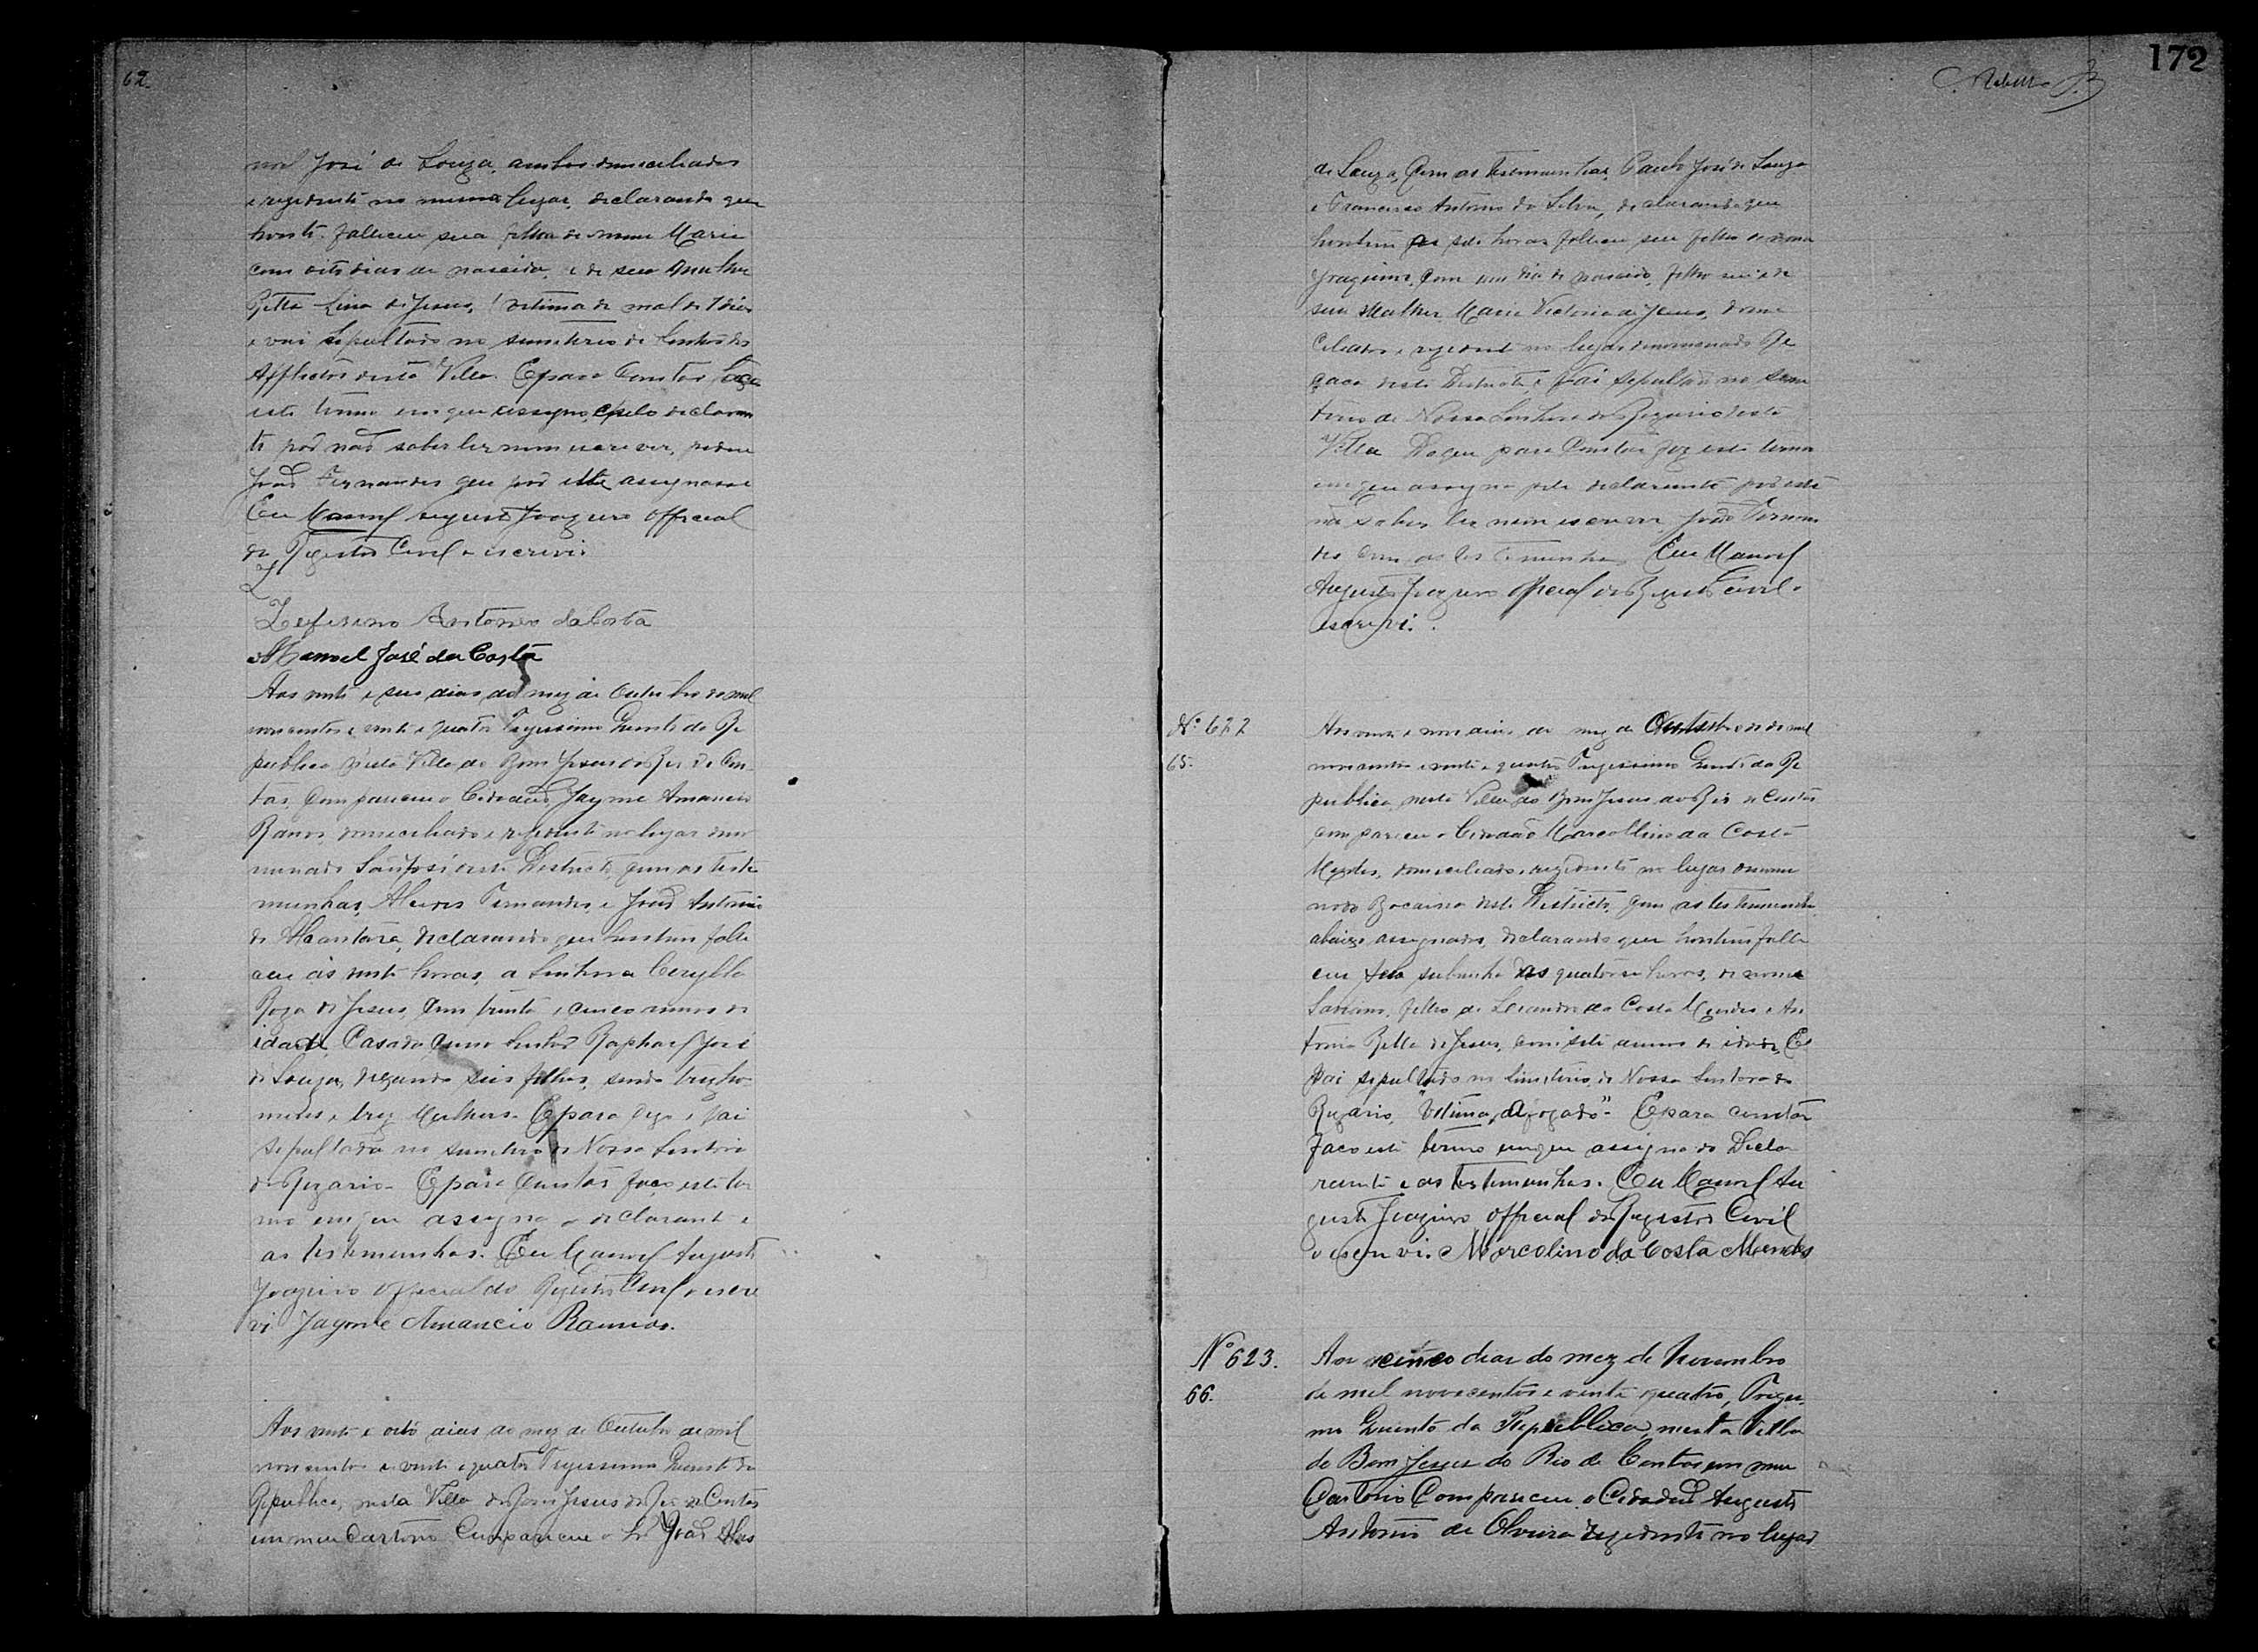 62.
noel José de Souza, ambos domiciliados
e rezidente no mesmo lugar, declarando que
honte falleceu sua filha de nome Maria
com oito dias de nascida, e de sua mulher
Ritta Lina de Jesus, vitima de mal de 7 dias
e vai sepultado no sumiterio de Senhor dos
Afflictos desta Villa. E para constar faço
este termo em que assigno, e pelo declaran
te por não saber ler nem escrever, pedeu
João Fernandes que por elle assignasse
Eu Manoel Augusto Joaquino Official
do Registro Civil o escrevi.
Zeferino Antonio da Costa
Manoel José da Costa
Aos vinte e seis dias do mez de Outubro de mil
novecentos e vinte e quatro Trigessimo Quinto da Re
publica nesta Villa do Bom Jesus do Rio de Con
tas, compareceu o Cidadão Jayme Amancio
Ramos, domiciliado e rezidente no lugar deno
minado deste Districto com as teste
munhas, Fernandes, e João Antonio
de Alcantara, declarando que hontem falle
ceu ás vinte horas, a Senhora
Roza de Jesus, com trinta e cinco annos de
idade Casada com o Senhor Raphael José
de Souza, deixando seis filhos, sendo trez ho
mens e trez Mulheres. E para digo e vai
sepultada no sumiterio de Nossa Senhora
do Rozario. E para constar faço este ter
mo em que assigna o declarante e
as testemunhas. Eu Manoel Augusto
Joaquino Official do Registro Civil o escre
vi Jayme Amancio Ramos.
Aos vinte e oito dias do mez de Outubro de mil
novecentos e vinte e quatro Trigessimo Quinto da
Republica, nesta Villa do Bom Jesus do Rio de Contas
em meu Cartorio Compareceu o Sr João
172
de Souza, Com as testemunhas, Paulo José de Souza
e Francisco Antonio da Silva, declarando que
hontem as sete horas falleceu seu filho de nome
Joaquim, com um dia de nascido, filho seu e de
sua Mulher Maria Victoria de Jesus, domi
ciliados e rezidente no lugar denominado Re
deste Districto e vai sepultado no sumi
terio de Nossa Senhora do Rozario desta
Villa Do que para Constar fiz este termo
em que assigna pelo declarante por este
não saber ler nem escrever João Fernan
des com as testemunhas Eu Manoel
Augusto Joaquino Official do Registro Civil o
escrevi.
Nº 622
65.
Aos vinte e nove dias do mez de Outubro de mil
novecentos e vinte e quatro Trigessimo Quinto da Re
publica nesta Villa do Bom Jesus do Rio de Contas
compareceu o Cidadão Marcollino da Costa
Mendes, domiciliado e rezidente no lugar denomi
nado Bocaina deste Districto, com as testemunhas
abaixo assignados, declarando que hontem falle
ceu seu sobrinho as quatorse horas, de nome
filho de Leandro da Costa Mendes e An
tonia Ritta de Jesus, com sete annos de idade, E
vai sepultado no Simiterio de Nossa Senhora do
Rozario, "Vitima, Afogado". E para constar
faço este termo em que assigna o Decla
rante e as testemunhas. Eu Manoel Au
gusto Joaquino Official do Registro Civil
o escrevi. Marcolino da Costa Mendes
Nº 623.
66.
Aos cinco dias do mez de Novembro
de mil novecentos e vinte quatro, Triges
mo Quinto da Republica, nesta Villa
do Bom Jesus do Rio de Contas em meu
Cartorio Compareceu o Cidadão Augusto
Antonio de Oliveira rezidente no lugar